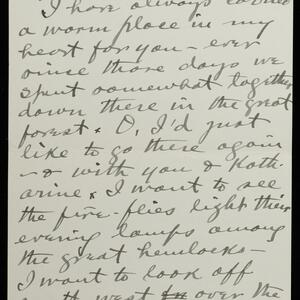 I have always carried
a warm place in my
heart for you – ever
since those days we
spent somewhat together
down there in the great
forest. O, I'd just
like to go there again
– & with you & Kath-
arine. I want to see
the fire-flies light their
evening lamps among
the great hemlocks –
I want to look off
west over the